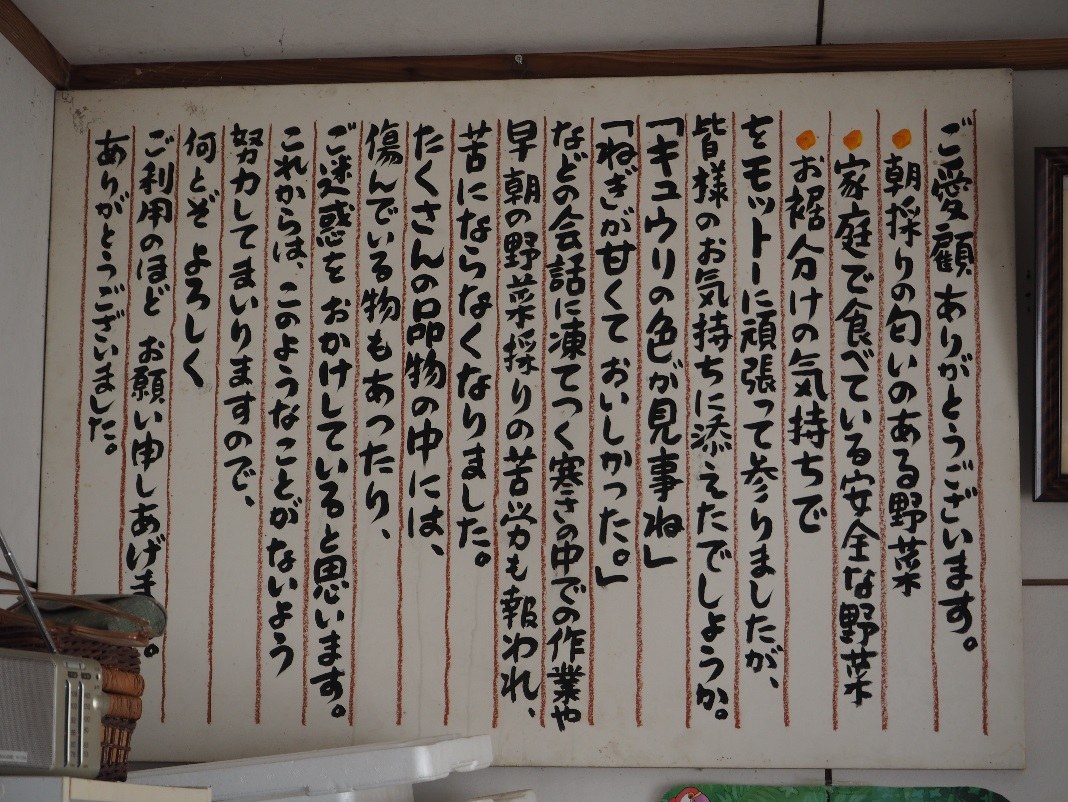 ご愛顧ありがとうございます。
朝採りの匂いのある野菜
家庭で食べている安全な野菜
お裾分けの気持ちで
をモットーに頑張って参りましたが、
皆様のお気持ちに添えたでしょうか。
「キュウリの色が見事ね」
「ねぎが甘くておいしかった。」
などの会話に凍てつく寒さの中での作業や
早朝の野菜採りの苦労も報われ、
苦にならなくなりました。
たくさんの品物の中には、
傷んでいる物もあったり、
ご迷惑をおかけしていると思います。
これからは、このようなことがないよう
努力してまいりますので、
何とぞよろしく
ご利用のほどお願い申しあげま。
ありがとうございました。